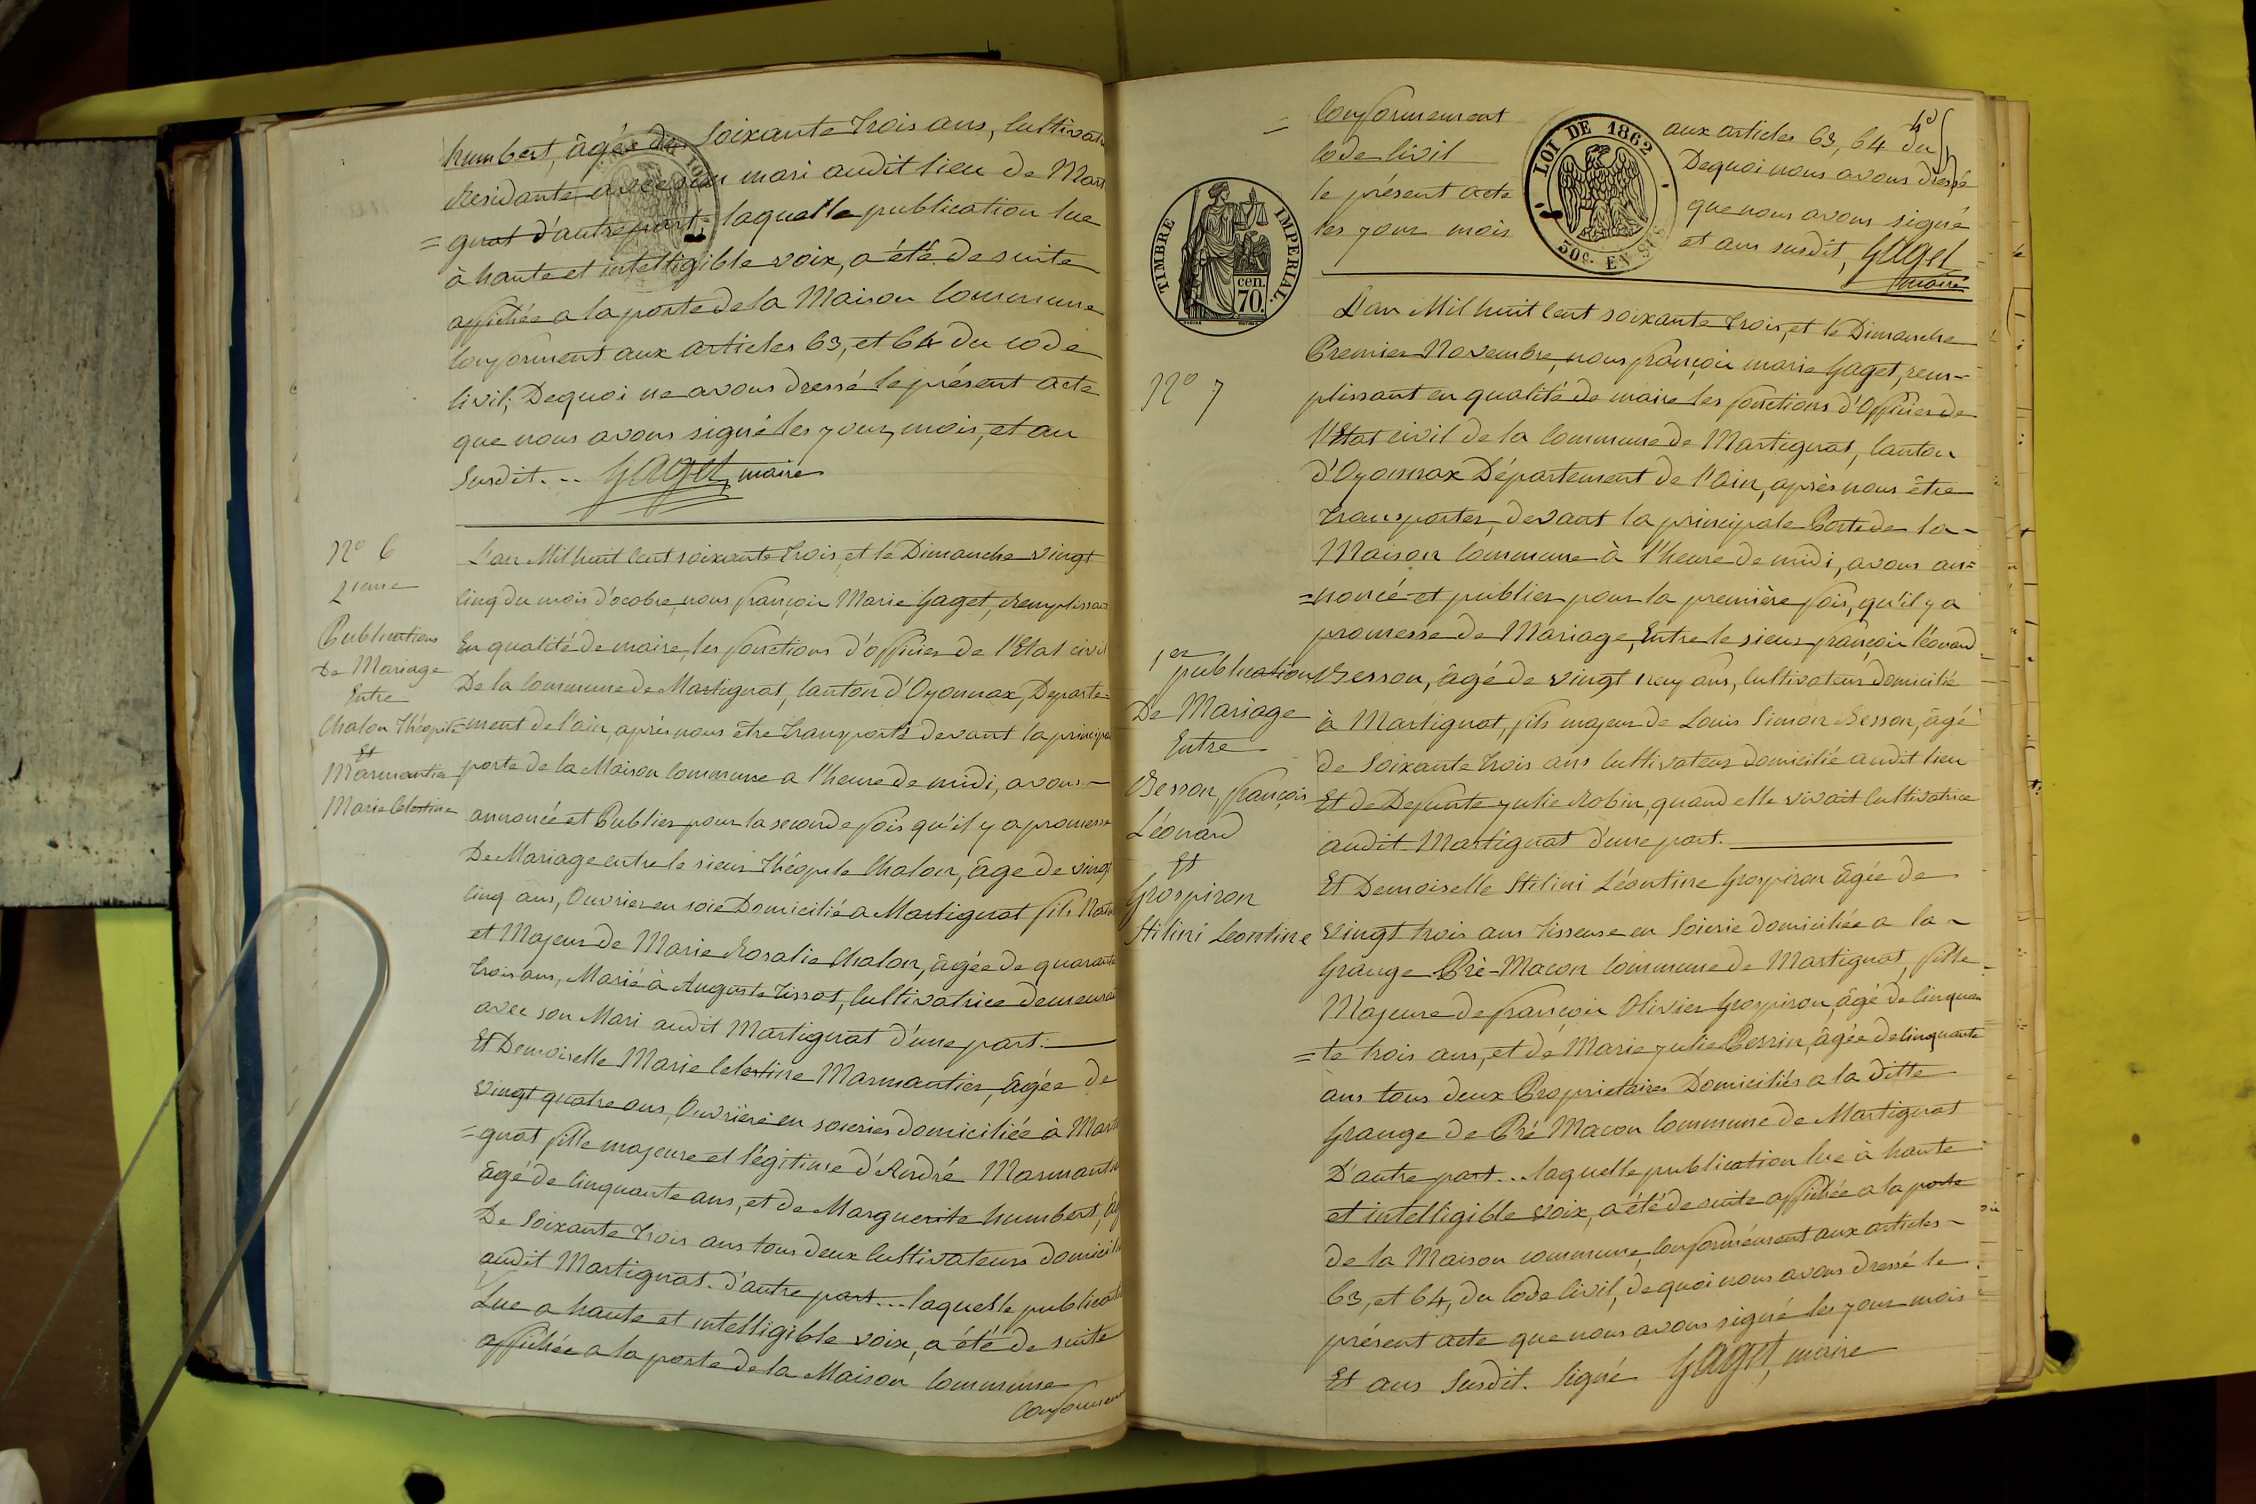 humbert, âgée de Soixante trois ans, Cultivatr
Residante avec son mari audit lieu de Mart
= gnat d'autre part; laquelle publication lue
à haute et intelligible voix, a été de suite
affichée a la porte de la Maison Commune
Conforment aux articles 63, et 64 du code
Civil; Dequoi ne avons dressé le présent acte
que nous avons signé les jour, mois, et an
Susdit... Gaget, maire
N° 6
2ieme
Publications
De Mariage
Entre
Chalon Théopile
Et
Marmantier
Marie Celestine
L'an Mil huit Cent soixante trois, et le Dimanche vingt
Cinq du mois d'ocobre, nous françois Marie Gaget, Remplissant
En qualité de maire, les fonctions d'officier de l'Etat civil
De la Commune de Martignat, Canton d'Oyonnax, Departe-
ment de l'ain, après nous être transporté devant la principa
porte de la Maison Commune a l'heure de midi, avons-
annoncé et Publier pour la seconde fois qu'il y a promesse
De Mariage entre le sieur Théopile Chalon, âge de vingt
Cinq ans, Ouvrier en soie Domicilié a Martignat fils Natu
et Majeur de Marie Rosalie Chalon, âgée de quarante
trois ans, Marié à Auguste Tissot, Cultivatrice demeurant
avec son Mari audit Martignat d'une part.
Et Demoiselle Marie Celestine Marmantier, âgée de
vingt quatre ans, Ouvrière en soieries domiciliée à Marti
= gnat fille majeure et légitime d'André Marmantier
âgé de Cinquante ans, et de Marguerite humbert, âg
De Soixante trois ans tous deux Cultivateurs domicili
audit Martignat. d'autre part... laquelle publicati
Lue a haute et intelligible voix, a été de suite
affichée a la porte de la Maison Commune
Conformement
= Conformement aux articles 63, 64 du
Code Civil Dequoi nous avons dressé
le présent acte que nous avons signé
les jour mois et ans susdit, Gaget
maire
LOI DE 1862
50c. EN SUS
TIMBRE IMPERIAL.
cen.
70.
N° 7
1er publication
De Mariage
Entre
Besson, françois
Léonard
Et
Grospiron
Stilini Leontine
L'an Mil huit Cent soixante trois, et le Dimanche
Premier Novembre, nous françois marie Gaget, rem-
plissant en qualité de maire les fonctions d'Officier de
l'Etat civil de la Commune de Martignat, Canton
d'Oyonnax Département de l'Ain, après nous être
transporter, devant la principale Porte de la-
Maison Commune à l'heure de midi, avons an=
=noncé et publier pour la première fois, qu'il y a
promesse de Mariage, Entre le sieur françois léonard
Besson, âgé de vingt neuf ans, Cultivateur domicilié
à Martignat, fils majeur de Louis Simon Besson, âgé
de Soixante trois ans Cultivateur domicilié audit lieu
Et de Defunte julie Robin, quand elle vivait Cultivatrice
audit Martignat d'une part.
Et Demoiselle Stilini Léontine Grospiron âgée de
vingt trois ans tisseuse en Soierie domiciliée a la-
Grange Pré-Macon Commune de Martignat, fille-
Majeure de françois Olivier Grospiron, âgé de Cinquan
=te trois ans, et de Marie julie Perrin, âgée de Cinquante
ans tous deux Proprietaires Domiciliés a la ditte
Grange de Pré Macon Commune de Martignat
D'autre part... laquelle publication lue à haute
et intelligible voix, a été de suite affichée a la porte
de la Maison commune, Conformément aux articles-
63, et 64, du Code Civil, de quoi nous avons dressé le
présent acte que nous avons signé les jour mois
Et ans Susdit. Signé Gaget, maire